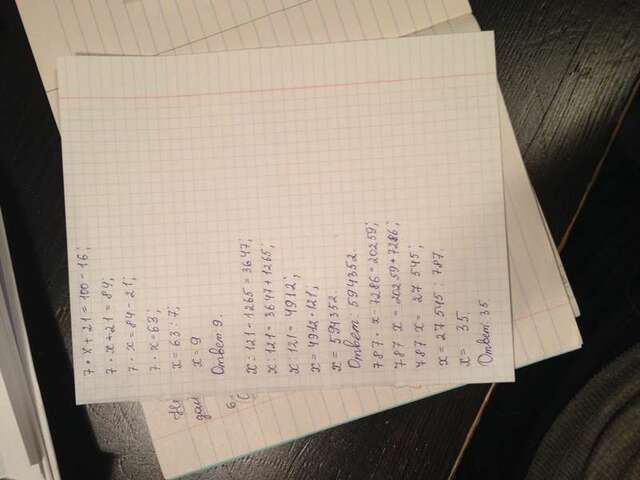 7 · x + 21 = 100 - 16;
7 · x + 21 = 84;
7 · x = 84 - 21;
7 · x = 63;
x = 63 : 7;
x = 9
Ответ 9.
x : 121 - 1265 = 3647;
x : 121 = 3647 + 1265;
x : 121 = 4912;
x = 4912 · 121;
x = 594352.
Ответ: 594352.
787 · x - 7286 = 20259;
787 x = 20259 + 7286;
787 x = 27 545;
x = 27 545 : 787.
x = 35.
Ответ: 35